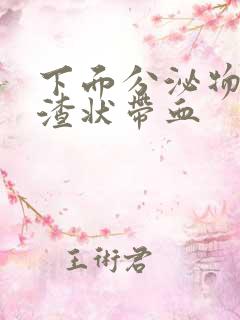 下而分泌物
渣状带血
王術君